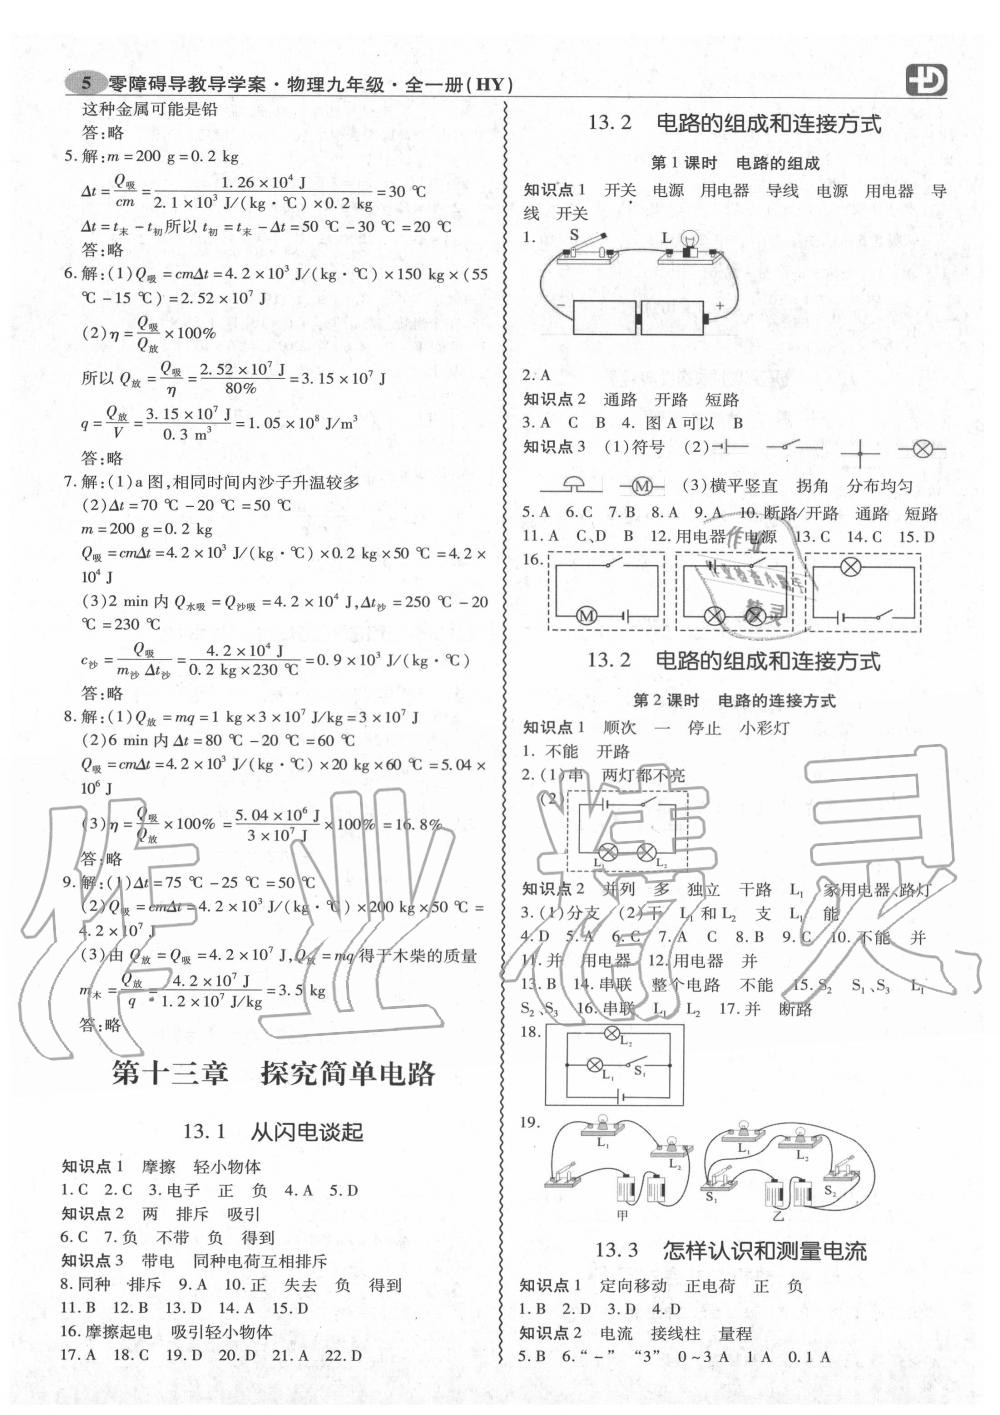 5 零障碍导教导学案·物理九年级·全一册(HY)
这种金属可能是铅
答:略
5.解:m=200 g=0.2 kg
Δt=Q吸/cm=1.26×10⁴ J/(2.1×10³ J/(kg·℃)×0.2 kg)=30 ℃
Δt=t末-t初所以t初=t末-Δt=50 ℃-30 ℃=20 ℃
答:略
6.解:(1)Q吸=cmΔt=4.2×10³ J/(kg·℃)×150 kg×(55
℃-15 ℃)=2.52×10⁷ J
(2)η=Q吸/Q放×100%
所以Q放=Q吸/η=2.52×10⁷ J/80%=3.15×10⁷ J
q=Q放/V=3.15×10⁷ J/0.3 m³=1.05×10⁸ J/m³
答:略
7.解:(1)a图,相同时间内沙子升温较多
(2)Δt=70 ℃-20 ℃=50 ℃
m=200 g=0.2 kg
Q吸=cmΔt=4.2×10³ J/(kg·℃)×0.2 kg×50 ℃=4.2×
10⁴ J
(3)2 min内Q水吸=Q沙吸=4.2×10⁴ J,Δt沙=250 ℃-20
℃=230 ℃
c沙=Q吸/m沙Δt沙=4.2×10⁴ J/0.2 kg×230 ℃=0.9×10³ J/(kg·℃)
答:略
8.解:(1)Q放=mq=1 kg×3×10⁷ J/kg=3×10⁷ J
(2)6 min内Δt=80 ℃-20 ℃=60 ℃
Q吸=cmΔt=4.2×10³ J/(kg·℃)×20 kg×60 ℃=5.04×
10⁶ J
(3)η=Q吸/Q放×100%=5.04×10⁶ J/3×10⁷ J×100%=16.8%
答:略
9.解:(1)Δt=75 ℃-25 ℃=50 ℃
(2)Q吸=cmΔt=4.2×10³ J/(kg·℃)×200 kg×50 ℃=
4.2×10⁷ J
(3)由Q放=Q吸=4.2×10⁷ J,Q放=mq得干木柴的质量
m木=Q放/q=4.2×10⁷ J/1.2×10⁷ J/kg=3.5 kg
答:略
第十三章 探究简单电路
13.1 从闪电谈起
知识点1 摩擦 轻小物体
1.C 2.C 3.电子 正 负 4.A 5.D
知识点2 两 排斥 吸引
6.C 7.负 不带 负 得到
知识点3 带电 同种电荷互相排斥
8.同种 排斥 9.A 10.正 失去 负 得到
11.B 12.B 13.D 14.A 15.D
16.摩擦起电 吸引轻小物体
17.A 18.C 19.D 20.D 21.A 22.D
13.2 电路的组成和连接方式
第1课时 电路的组成
知识点1 开关 电源 用电器 导线 电源 用电器 导
线 开关
1. S L
- +
2.A
知识点2 通路 开路 短路
3.A C B 4.图A可以 B
知识点3 (1)符号 (2)
M (3)横平竖直 拐角 分布均匀
5.A 6.C 7.B 8.A 9.A 10.断路/开路 通路 短路
11.A C、D B 12.用电器 电源 13.C 14.C 15.D
16. M
13.2 电路的组成和连接方式
第2课时 电路的连接方式
知识点1 顺次 一 停止 小彩灯
1.不能 开路
2.(1)串 两灯都不亮
(2)
L₁ L₂
知识点2 并列 多 独立 干路 L₁ 家用电器、路灯
3.(1)分支 (2)干 L₁和L₂ 支 L₁ 能
4.D 5.A 6.C 7.A C 8.B 9.C 10.不能 并
11.并 用电器 12.用电器 并
13.B 14.串联 整个电路 不能 15.S₂ S₁、S₃ L₁
S₂、S₃ 16.串联 L₁ L₂ 17.并 断路
18. L₂
L₁ S₁
19. L₁ L₂ 甲 L₁ L₂ S₁ S₂ 乙
13.3 怎样认识和测量电流
知识点1 定向移动 正电荷 正 负
1.B 2.D 3.D 4.D
知识点2 电流 接线柱 量程
5.B 6."-" "3" 0~3 A 1 A 0.1 A
作业精灵